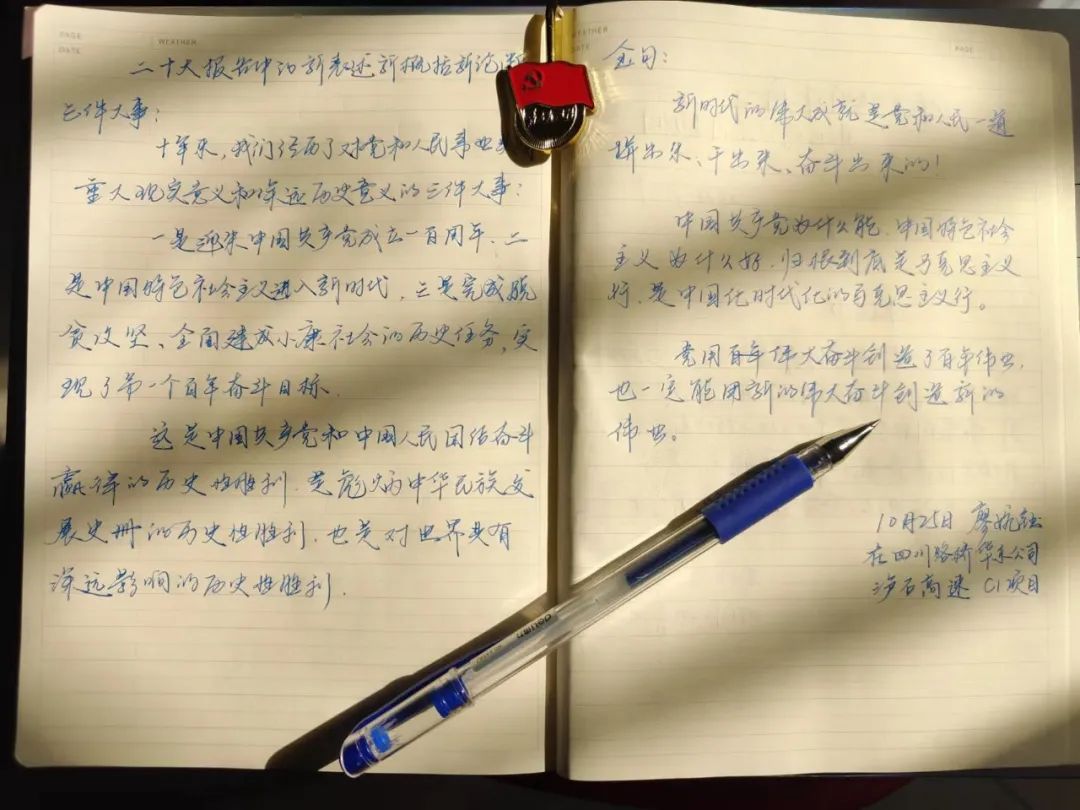 PAGE
DATE
WEATHER
二十大报告中的新表述新概括新论
三件大事：
十年来，我们经历了对党和人民事业
重大现实意义和深远历史意义的三件大事：
一是迎来中国共产党成立一百周年、二
是中国特色社会主义进入新时代，三是完成脱
贫攻坚、全面建成小康社会的历史任务，实
现了第一个百年奋斗目标.
这是中国共产党和中国人民团结奋斗
赢得的历史性胜利.是彪炳中华民族发
展史册的历史性胜利.也是对世界具有
深远影响的历史性胜利.
WEATHER
DATE
PAGE
金句：
新时代的伟大成就是党和人民一道
拼出来、干出来、奋斗出来的！
中国共产党为什么能.中国特色社会
主义为什么好.归根到底是马克思主义
行.是中国化时代化的马克思主义行。
党用百年伟大奋斗创造了百年伟业.
也一定能用新的伟大奋斗创造新的
伟业。
10月25日 廖
在四川路桥华东公司
高速 C1项目